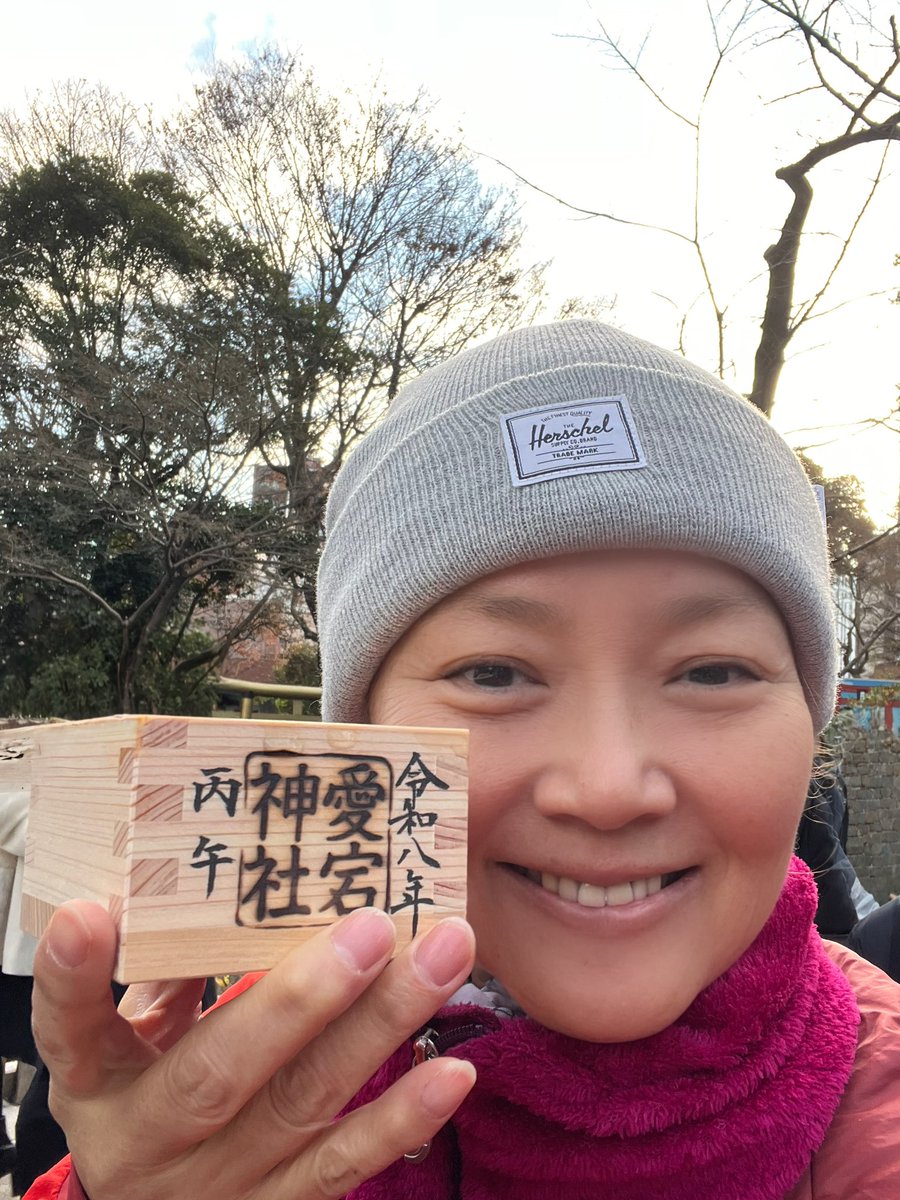 令和八年
愛宕
神社
丙午
THE FINEST QUALITY
THE
Herschel
SUPPLY CO. BRAND
CO.
TRADE MARK